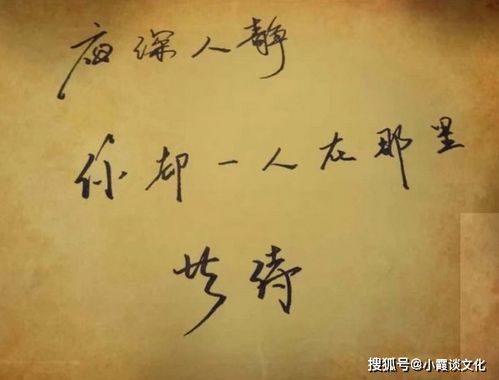 夜深人静
你却一人在那里
等待
搜狐号@小霞谈文化